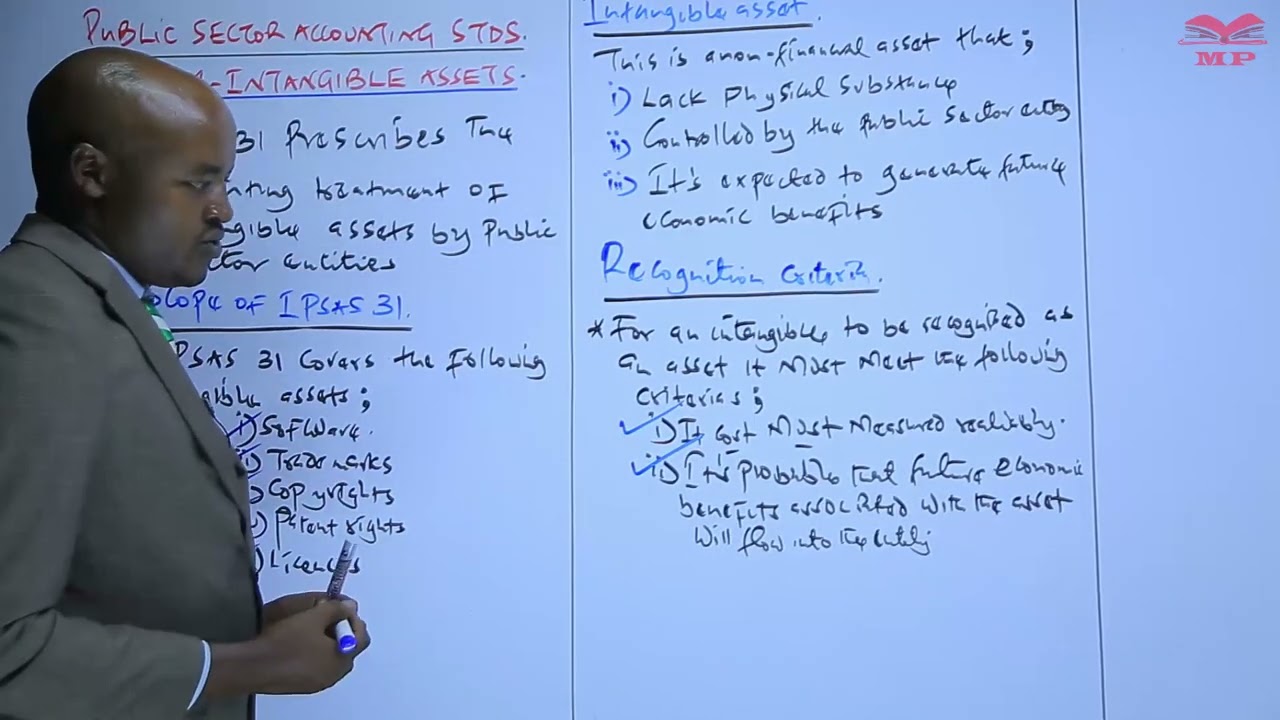 PUBLIC SECTOR ACCOUNTING STDS.
-INTANGIBLE ASSETS.
31 Prescribes The
nting treatment OF
gible assets by Public
ctor entities
SCOPE OF IPSAS 31.
PSAS 31 Covers the Following
gible assets;
i) Software.
ii) Trade marks
) Copyrights
) Patent rights
) Licences
Intangible asset.
This is a non-financial asset that;
i) Lack Physical Substance
ii) Controlled by the Public Sector entity
iii) It's expected to generate future
economic benefits
Recognition Criteria.
* For an intangible to be recognised as
an asset it Must Meet the following
criterias;
i) It cost Must Measured realiably.
ii) It's Probable that future economic
benefits associated with the asset
Will flow into the entity
MP